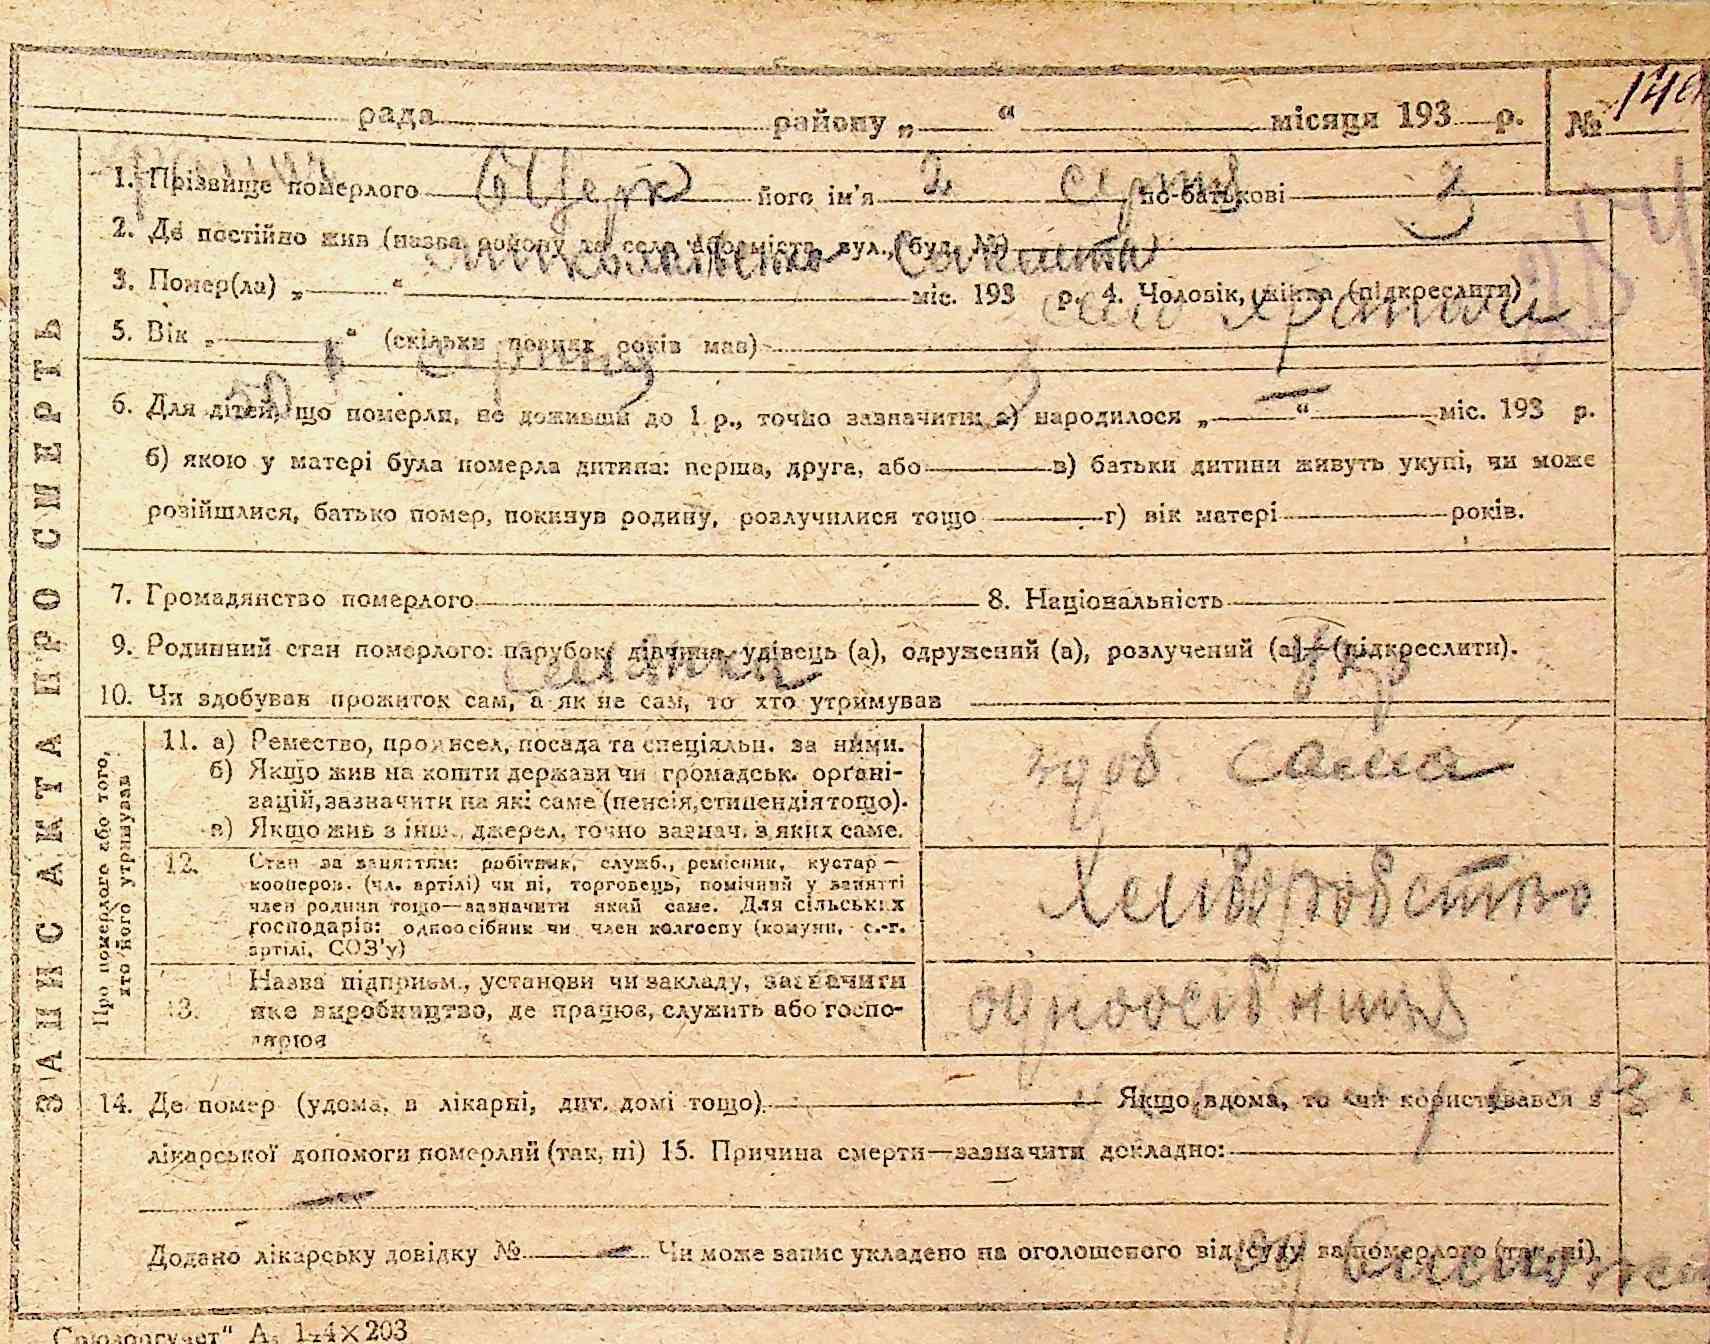 рада району „ “ місяця 193 р. №
1. Прізвище померлого його ім'я 2 серпня по-батькові 3
2. Де постійно жив (назва району та села або міста, вул., буд. №)
3. Помер(ла) „ “ міс. 193 р. 4. Чоловік, жінка (підкреслити)
село
5. Вік „ “ (скільки повних років мав)
1 серпня 3
50
6. Для дітей, що померли, не доживши до 1 р., точно зазначити: а) народилося „ — “ міс. 193 р.
б) якою у матері була померла дитина: перша, друга, або в) батьки дитини живуть укупі, чи може
розійшлися, батько помер, покинув родину, розлучилися тощо г) вік матері років.
7. Громадянство померлого 8. Національність
9. Родинний стан померлого: парубок, дівчина, удівець (а), одружений (а), розлучений (а)—(підкреслити).
селянка укр
10. Чи здобував прожиток сам, а як не сам, то хто утримував
здоб. сама
ЗАПИС АКТА ПРО СМЕРТЬ
Про померлого або того, хто його утримував
11. а) Ремество, промисел, посада та спеціяльн. за ними.
б) Якщо жив на кошти держави чи громадськ. орґані-
зацій, зазначити на які саме (пенсія, стипендія тощо).
в) Якщо жив з інш. джерел, точно зазнач. з яких саме.
12. Стан за заняттям: робітник, служб., ремісник, кустар —
кооперов. (чл. артілі) чи ні, торговець, помічний у занятті
член родини тощо—зазначити який саме. Для сільських
господарів: одноосібник чи член колгоспу (комуни, с.-г.
артілі, СОЗ'у)
хліборобство
13. Назва підприєм., установи чи закладу, зазначити
яке виробництво, де працює, служить або госпо-
дарює
одноосібниця
14. Де помер (удома, в лікарні, дит. домі тощо) Якщо вдома, то чи користувався з
лікарської допомоги померлий (так, ні) 15. Причина смерти—зазначити докладно:
—
Додано лікарську довідку № — Чи може запис укладено на оголошеного від суду за померлого (так, ні)
од
203